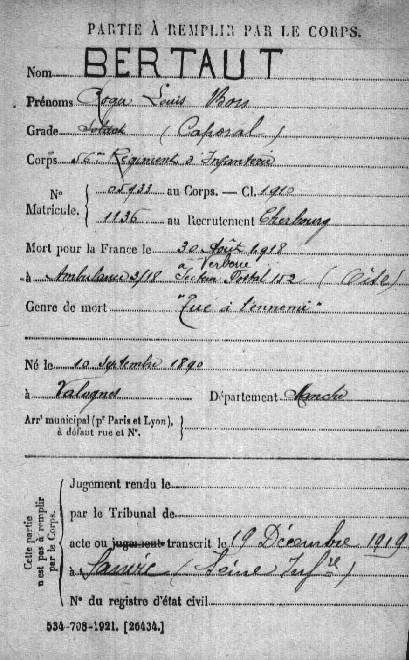 PARTIE À REMPLIR PAR LE CORPS.
Nom BERTAUT
Prénoms Louis
Grade Soldat (Caporal)
Corps Régiment d'Infanterie
N° Matricule. { 05133 au Corps. — Cl. 1910
1136 au Recrutement Cherbourg
Mort pour la France le 30 Août 1918
à Verberie
à Ambulance 3/18 Secteur Postal 152 (Oise)
Genre de mort "Tué à l'ennemi"
Né le 10 septembre 1890
à Valognes Département Manche
Arrt municipal (pr Paris et Lyon), à défaut rue et N°. }
Cette partie n'est pas à remplir par le Corps.
Jugement rendu le
par le Tribunal de
acte ou jugement transcrit le 19 Décembre 1919
à (Seine Infre)
N° du registre d'état civil
534-708-1921. [26434.]